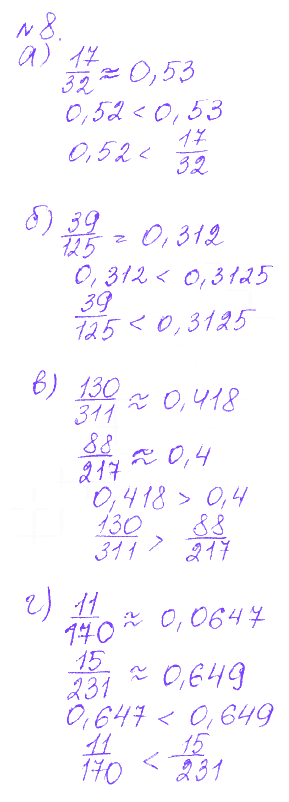 № 8.
а) 17/32 ≈ 0,53
0,52 < 0,53
0,52 < 17/32
б) 39/125 = 0,312
0,312 < 0,3125
39/125 < 0,3125
в) 130/311 ≈ 0,418
88/217 ≈ 0,4
0,418 > 0,4
130/311 > 88/217
г) 11/170 ≈ 0,0647
15/231 ≈ 0,649
0,647 < 0,649
11/170 < 15/231